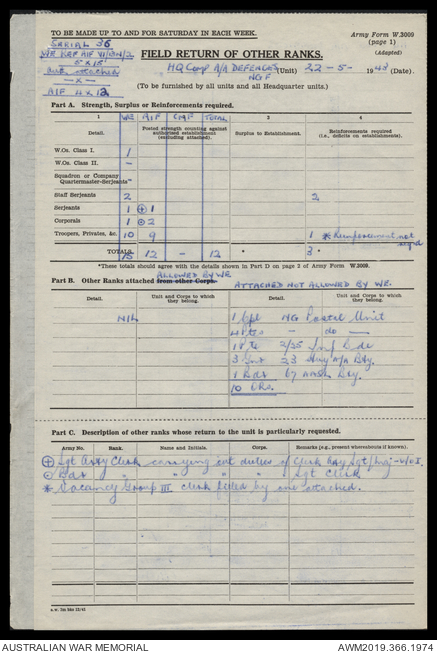 TO BE MADE UP TO AND FOR SATURDAY IN EACH WEEK.
Army Form W.3009
(page 1)
(Adapted)
SERIAL 36
WE REF AIF V/134/2
5 x 15
att attached
— x —
AIF 4 x 12
FIELD RETURN OF OTHER RANKS.
HQ Comp A/A DEFENCES (Unit) 22-5- 1943 (Date).
NGF
(To be furnished by all units and all Headquarter units.)
Part A. Strength, Surplus or Reinforcements required.
1 WE AIF CMF TOTAL 3 4
Detail. Posted strength counting against authorized establishment (excluding attached). Surplus to Establishment. Reinforcements required (i.e., deficits on establishments).
W.Os. Class I. 1
W.Os. Class II. –
Squadron or Company
Quartermaster-Serjeants
Staff Serjeants 2 2
Serjeants 1 ⊕ 1
Corporals 1 ⊙ 2
Troopers, Privates, &c. 10 9 1 * Reinforcement not reqd
TOTALS 15 12 – 12 * 3 *
*These totals should agree with the details shown in Part D on page 2 of Army Form W.3009.
ALLOWED BY WE
Part B. Other Ranks attached from other Corps. ATTACHED NOT ALLOWED BY WE.
Detail. Unit and Corps to which they belong. Detail. Unit and Corps to which they belong.
NIL 1 Cpl HQ Postal Unit
4 Ptes — do —
1 Pte 2/25
3 Gnr 23 Hvy A/A Bty.
1 Bdr 67 Bty.
10 ORs.
Part C. Description of other ranks whose return to the unit is particularly requested.
Army No. Rank. Name and Initials. Corps. Remarks (e.g., present whereabouts if known).
⊕ Sgt Arty Clerk carrying out duties of Clerk
⊙ Bdr " " " " " Sgt Clerk
* Vacancy Group III clerk filled by one attached.
AUSTRALIAN WAR MEMORIAL
AWM2019.366.1974